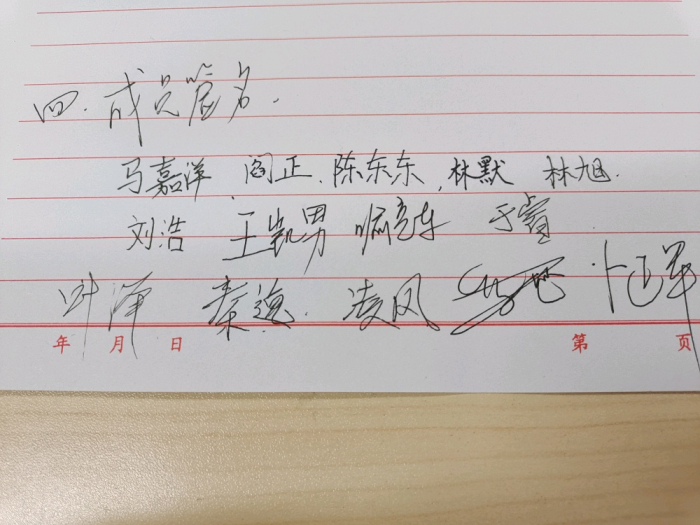 四.成员签名.
马嘉洋、阎正、陈东东,林默 林旭.
刘浩 王凯男 于
叶泽 秦 凌风 卜正军
年 月 日 第 页